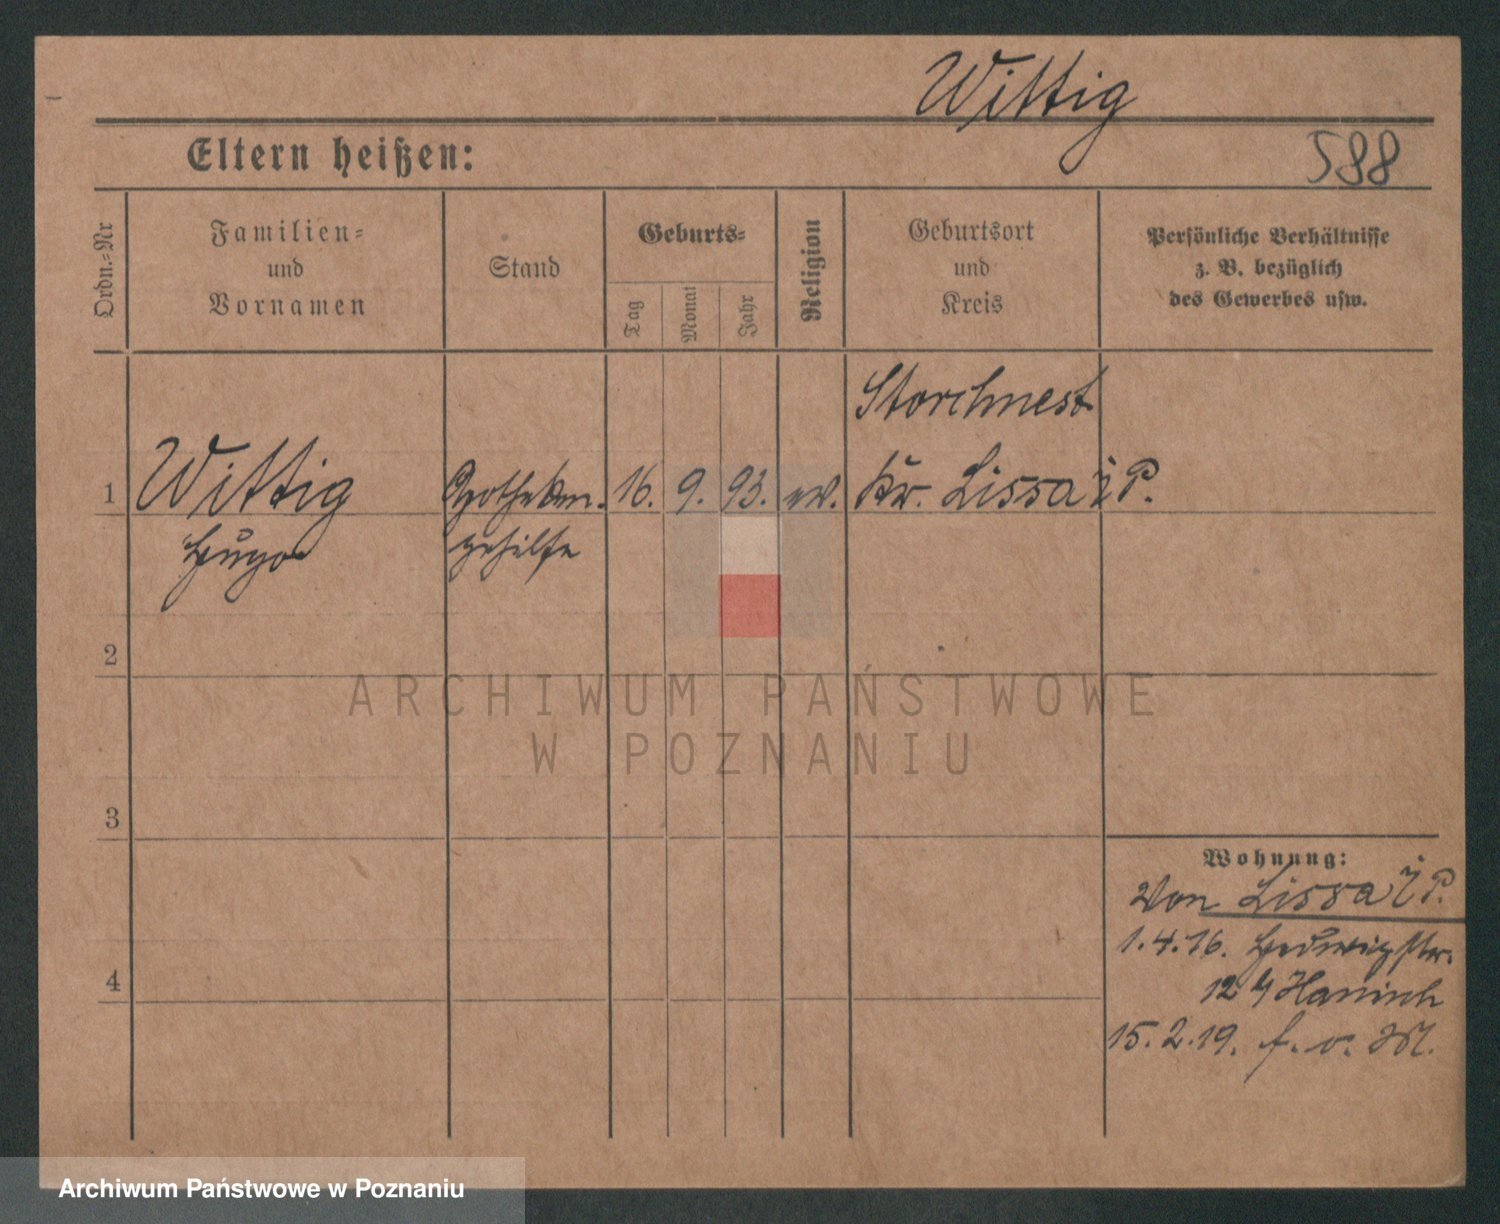 Wittig
Eltern heißen:
588
Ordn.-Nr
Familien-
und
Vornamen
Stand
Geburts-
Tag
Monat
Jahr
Religion
Geburtsort
und
Kreis
Persönliche Verhältnisse
z. B. bezüglich
des Gewerbes usw.
Storchnest
1 Wittig Apotheken- 16. 9. 93. ev. Kr. Lissa i P.
Hugo gehilfe
2
ARCHIWUM PAŃSTWOWE
W POZNANIU
3
Wohnung:
Von Lissa i P.
1.4.16. Hedwigstr.
12 b/ Hanisch
4
15.2.19. f. v. M.
Archiwum Państwowe w Poznaniu